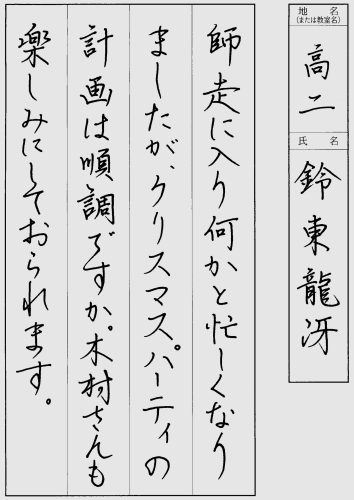 地名
(または教室名)
高二
氏名
鈴東龍冴
師走に入り何かと忙しくなり
ましたが、クリスマスパーティの
計画は順調ですか。木村さんも
楽しみにしておられます。